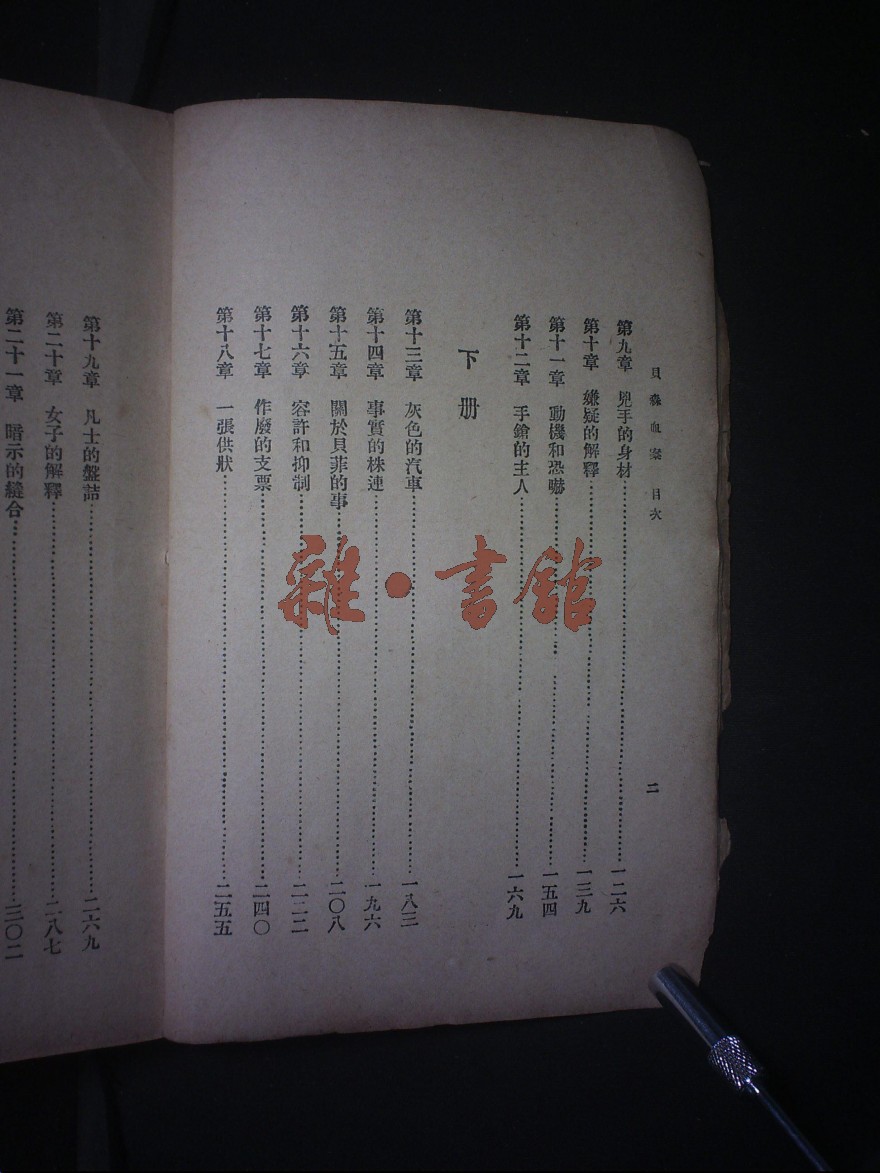 貝森血案 目次
二
第九章 兇手的身材……一二六
第十章 嫌疑的解釋……一三九
第十一章 動機和恐嚇……一五四
第十二章 手鎗的主人……一六九
下册
第十三章 灰色的汽車……一八三
第十四章 事實的株連……一九六
第十五章 關於貝菲的事……二〇八
第十六章 容許和抑制……二二二
第十七章 作廢的支票……二四〇
第十八章 一張供狀……二五五
第十九章 凡士的盤詰……二六九
第二十章 女子的解釋……二八七
第二十一章 暗示的縫合……三〇二
雜·書館